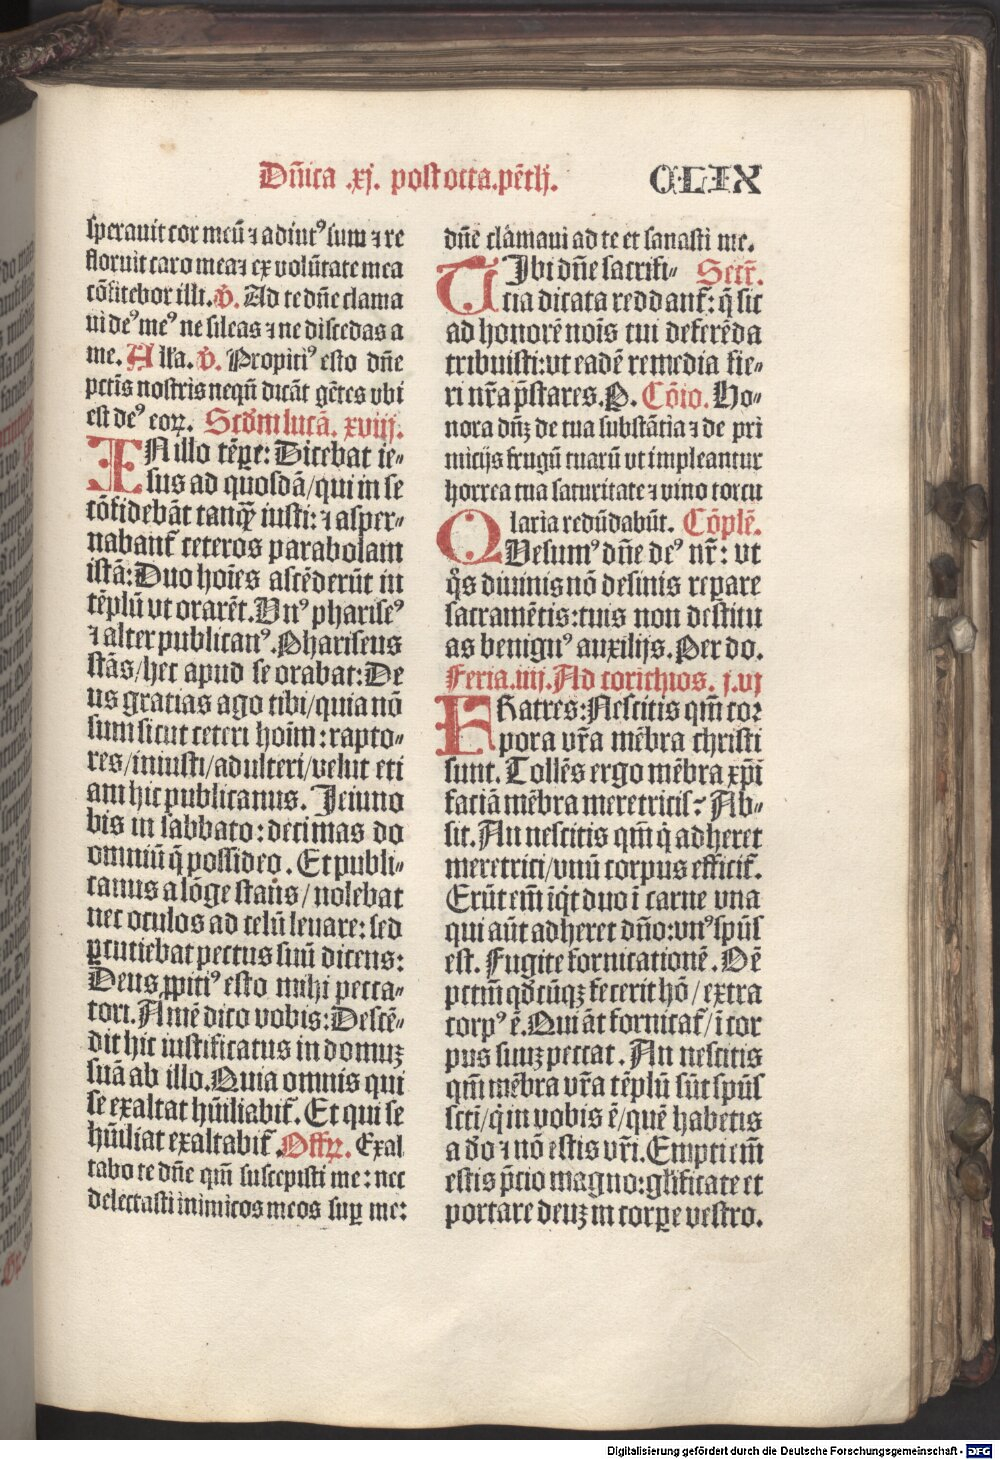 Dñica .xj. post octa.pẽth.
CLIX
sperauit cor meũ ⁊ adiutꝰ sum ⁊ re
floruit caro mea⁊ ex volũtate mea
cõfitebor illi. ℣. Ad te dñe clama
ui deꝰ meꝰ ne sileas ⁊ ne discedas a
me. Alľa. ℣. Propitiꝰ esto dñe
pctĩs nostris nequñ dicãt gẽtes vbi
est deꝰ eoꝝ. Scđm lucã. xviij.
IN illo tẽpe: Dicebat ie-
sus ad quosdã/qui in se
cõfidebãt tanqꝫ iusti: ⁊ asper-
nabant᷑ ceteros parabolam
istã: Duo hoĩes ascẽderũt in
tẽplũ vt orarẽt. Vnꝰ phariseꝰ
⁊ alter publicanꝰ. Phariseus
stãs/hec apud se orabat: De
us gratias ago tibi/quia nõ
sum sicut ceteri hoĩm: rapto-
res/iniusti/adulteri/velut eti
am hic publicanus. Jeiuno
bis in sabbato: decimas do
omniũ q̃ possideo. Et publi-
canus a lõge stañs/nolebat
nec oculos ad celũ leuare: sed
ꝑcutiebat pectus suũ dicens:
Deus ꝓpitiꝰ esto mihi pecca-
tori. Amẽ dico vobis: Descẽ-
dit hic iustificatus in domuꝫ
suã ab illo. Quia omnis qui
se exaltat hũiliabit᷑. Et qui se
hũiliat exaltabit᷑ Offꝝ. Exal
tabo te dñe qm̃ suscepisti me: nec
delectasti inimicos meos suꝑ me:
dñe clamaui ad te et sanasti me.
TIbi dñe sacrifi- Secr̃.
cia dicata reddant᷑: q̃ sic
ad honorẽ noĩs tui deferẽda
tribuisti: vt eadẽ remedia fie-
ri nr̃a p̃stares. P. Cõio. Ho-
nora dñꝫ de tua substãtia ⁊ de pri
micijs frugũ tuarũ vt impleantur
horrea tua saturitate ⁊ vino torcu
laria redũdabũt. Cõplẽ.
QVesumꝰ dñe deꝰ nr̃: vt
q̃s diuinis nõ desinis repare
sacramẽtis: tuis non destitu
as benignꝰ auxilijs. Per do.
Feria.iiij. Ad corithios. j. vj
FRatres: Nescitis qm̃ cor
pora vr̃a mẽbra christi
sunt. Tollẽs ergo mẽbra xp̃i
faciã mẽbra meretricis? Ab-
sit. An nescitis qm̃ q̃ adheret
meretrici/vnũ corpus efficit᷑.
Erũt em̃ iq̃t duo ĩ carne vna
qui aũt adheret dño: vnꝰ spũs
est. Fugite fornicationẽ. Oẽ
pctm̃ qđcũqꝫ fecerit hõ/extra
corpꝰ ẽ. Qui ãt fornicat᷑/ĩ cor
pus suuꝫ peccat. An nescitis
qm̃ mẽbra vr̃a tẽplũ sũt spũs
scti/q̃ in vobis ẽ/quẽ habetis
a đo ⁊ nõ estis vr̃i. Empti em̃
estis p̃cio magno: glificate et
portare deuꝫ in corꝑe vestro.
Digitalisierung gefördert durch die Deutsche Forschungsgemeinschaft - DFG